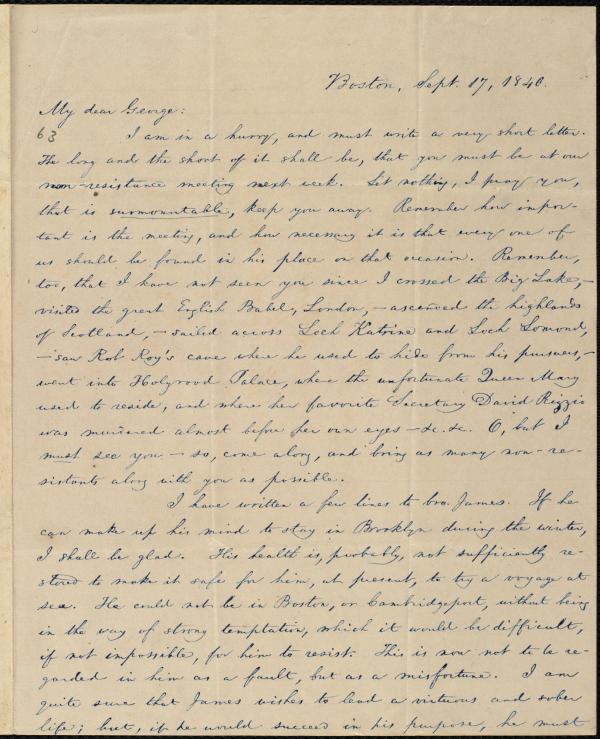 Boston, Sept. 17, 1840.
My dear George:
63
I am in a hurry, and must write a very short letter.
The long and the short of it shall be, that you must be at our
non-resistance meeting next week. Let nothing, I pray you,
that is surmountable, keep you away. Remember how impor-
tant is the meeting, and how necessary it is that every one of
us should be found in his place on that occasion. Remember,
too, that I have not seen you since I crossed the Big Lake,—
visited the great English Babel, London,—ascended the highlands
of Scotland,—sailed across Loch Katrine and Loch Lomond,
—saw Rob Roy's cave where he used to hide from his pursuers,—
went into Holyrood Palace, where the unfortunate Queen Mary
used to reside, and where her favorite Secretary David Rizzio
was murdered almost before her own eyes—&c. &c. O, but I
must see you—so, come along, and bring as many non-re-
sistants along with you as possible.
I have written a few lines to bro. James. If he
can make up his mind to stay in Brooklyn during the winter,
I shall be glad. His health is, probably, not sufficiently re-
stored to make it safe for him, at present, to try a voyage at
sea. He could not be in Boston, or Cambridgeport, without being
in the way of strong temptation, which it would be difficult,
if not impossible, for him to resist. This is now not to be re-
garded in him as a fault, but as a misfortune. I am
quite sure that James wishes to lead a virtuous and sober
life; but, if he would succeed in his purpose, he must